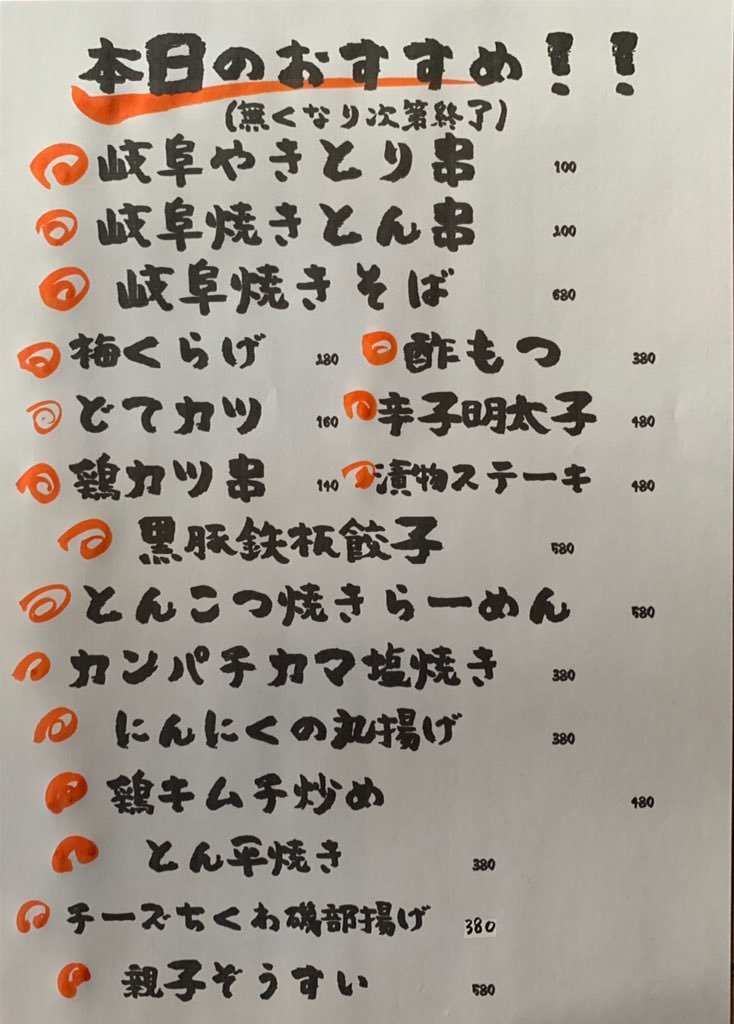 本日のおすすめ!!
(無くなり次第終了)
岐阜やきとり串 100
岐阜焼きとん串 100
岐阜焼きそば 680
梅くらげ 180 酢もつ 380
どてカツ 160 辛子明太子 480
鶏カツ串 140 漬物ステーキ 480
黒豚鉄板餃子 580
とんこつ焼きらーめん 580
カンパチカマ塩焼き 380
にんにくの丸揚げ 380
鶏キムチ炒め 480
とん平焼き 380
チーズちくわ磯部揚げ 380
親子ぞうすい 580